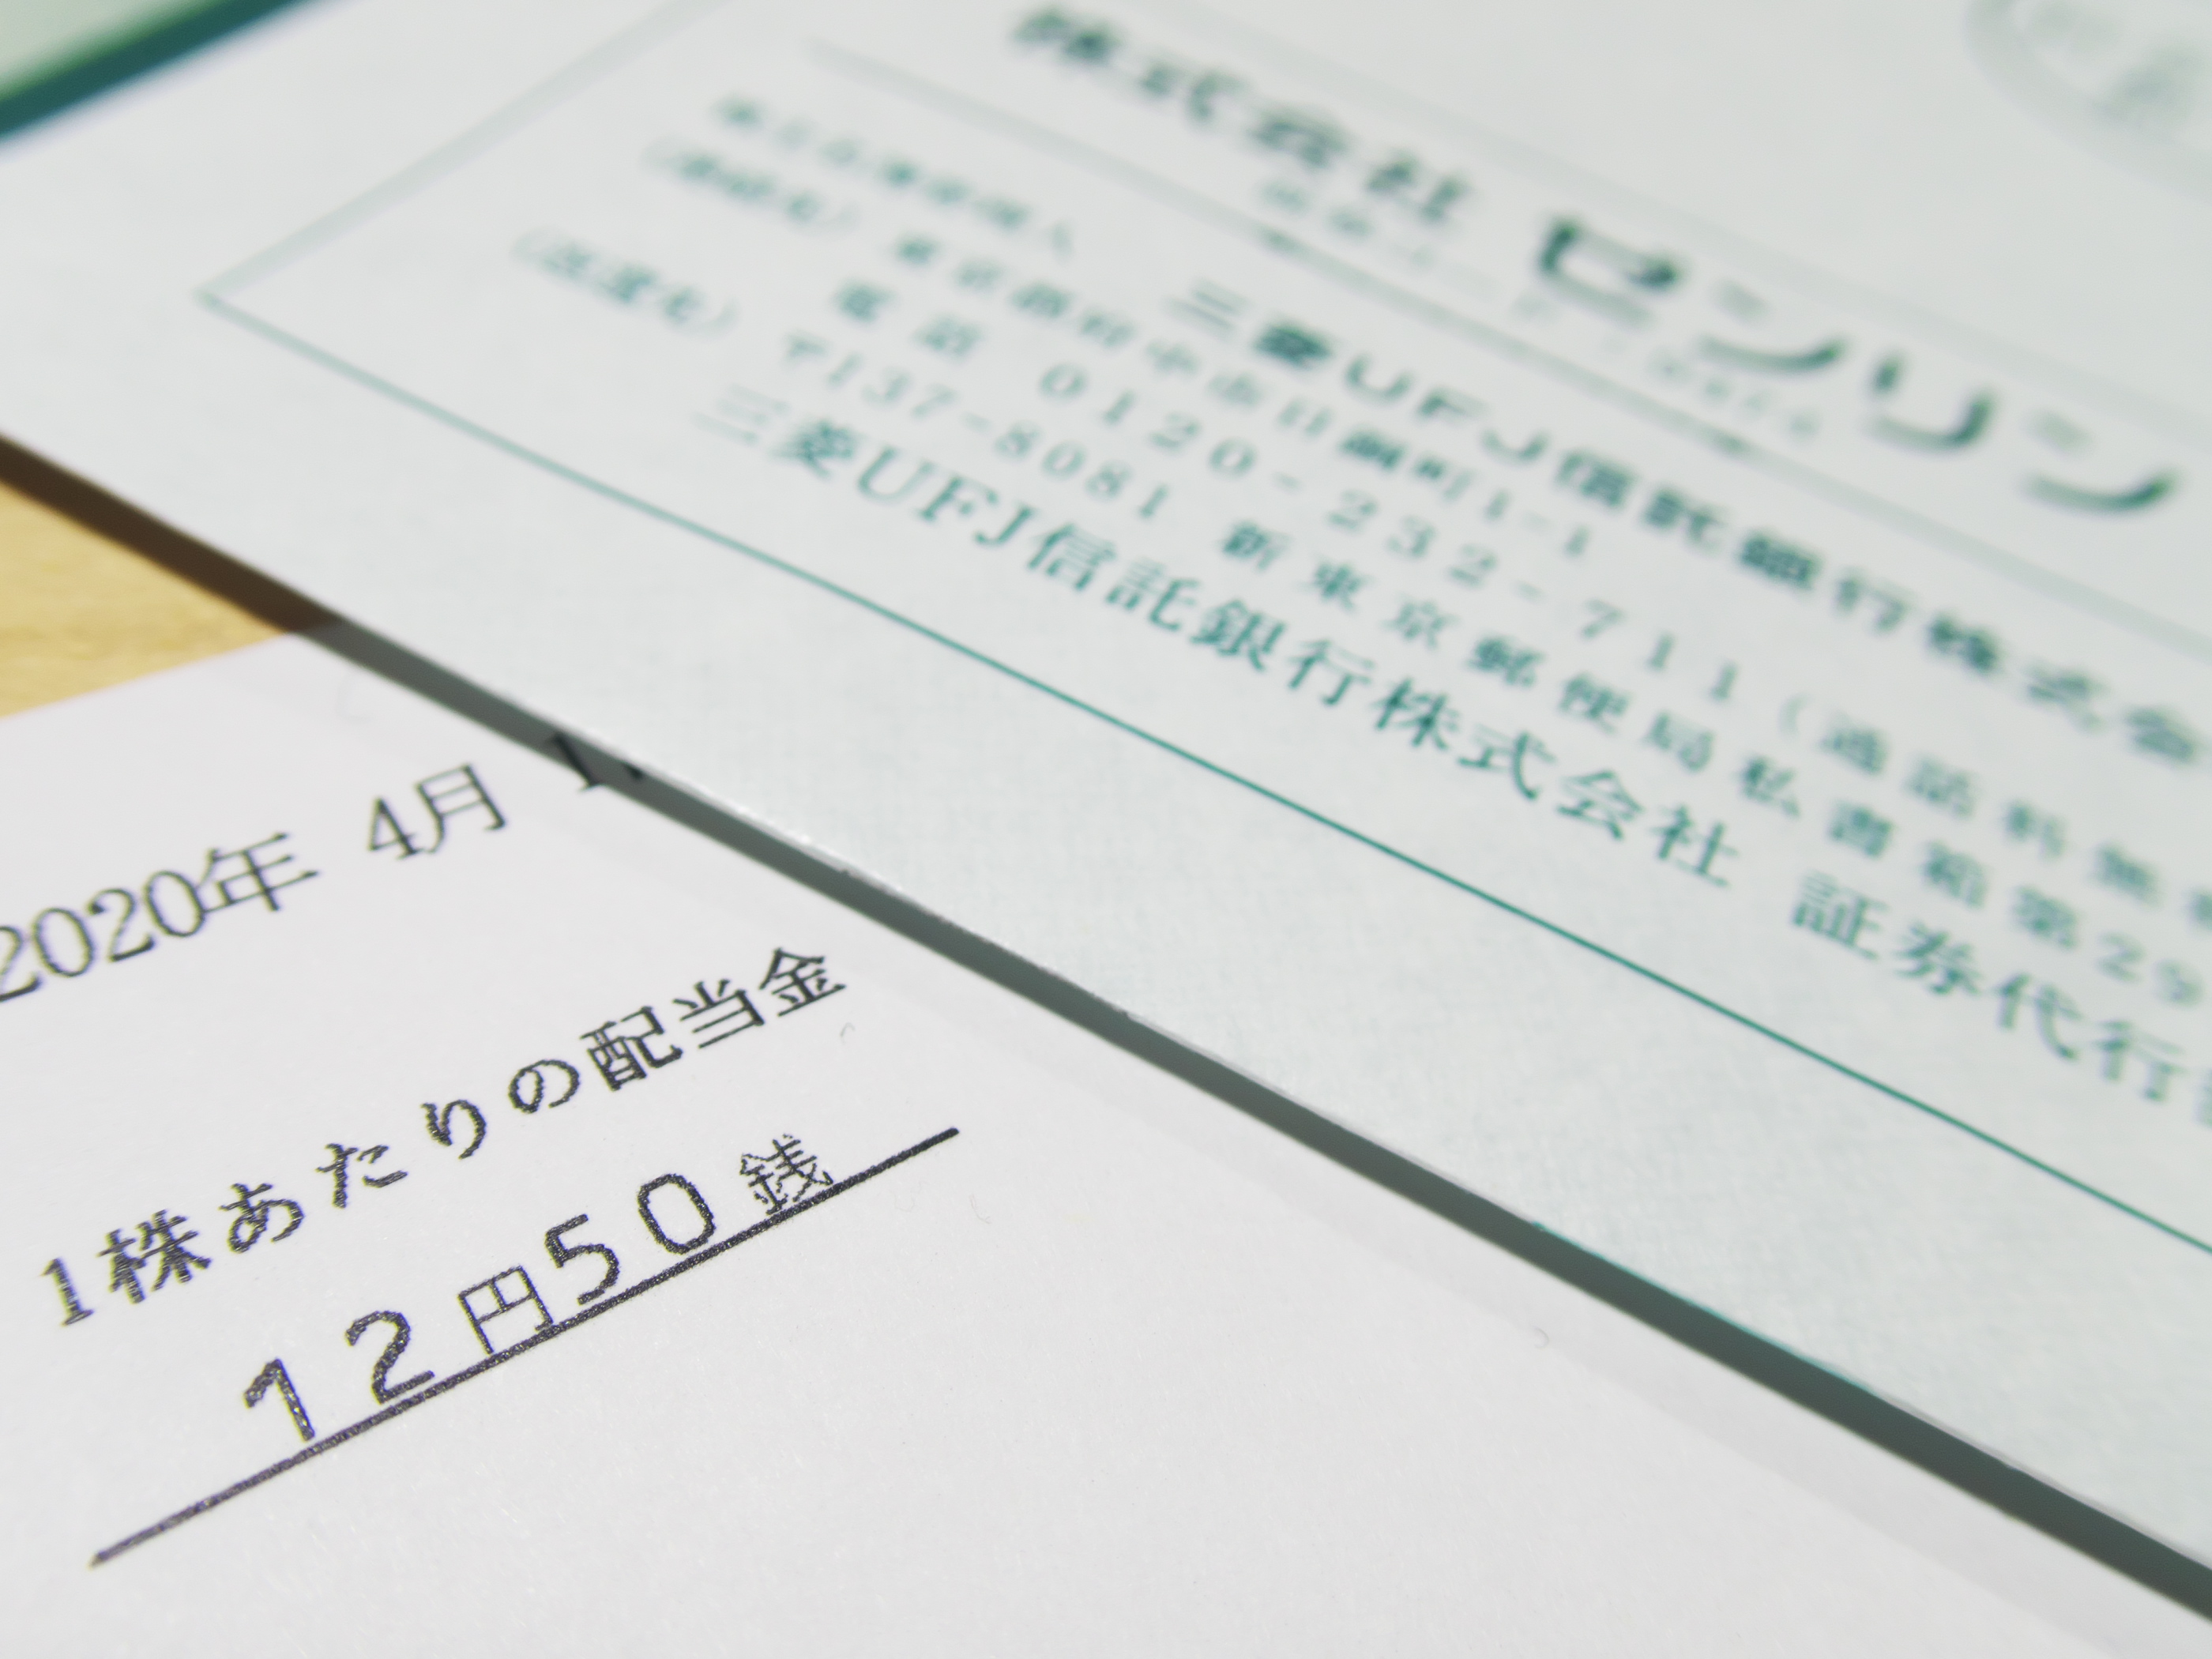 株式会社 ゼンリン
三菱UFJ信託銀行株式会
(連絡先) 東京都府中市日鋼町1-1
電話 0120-232-711(通話料無
(送達先) 〒137-8081 新東京郵便局私書箱第29
三菱UFJ信託銀行株式会社 証券代行
2020年 4月 1
1株あたりの配当金
12円50銭